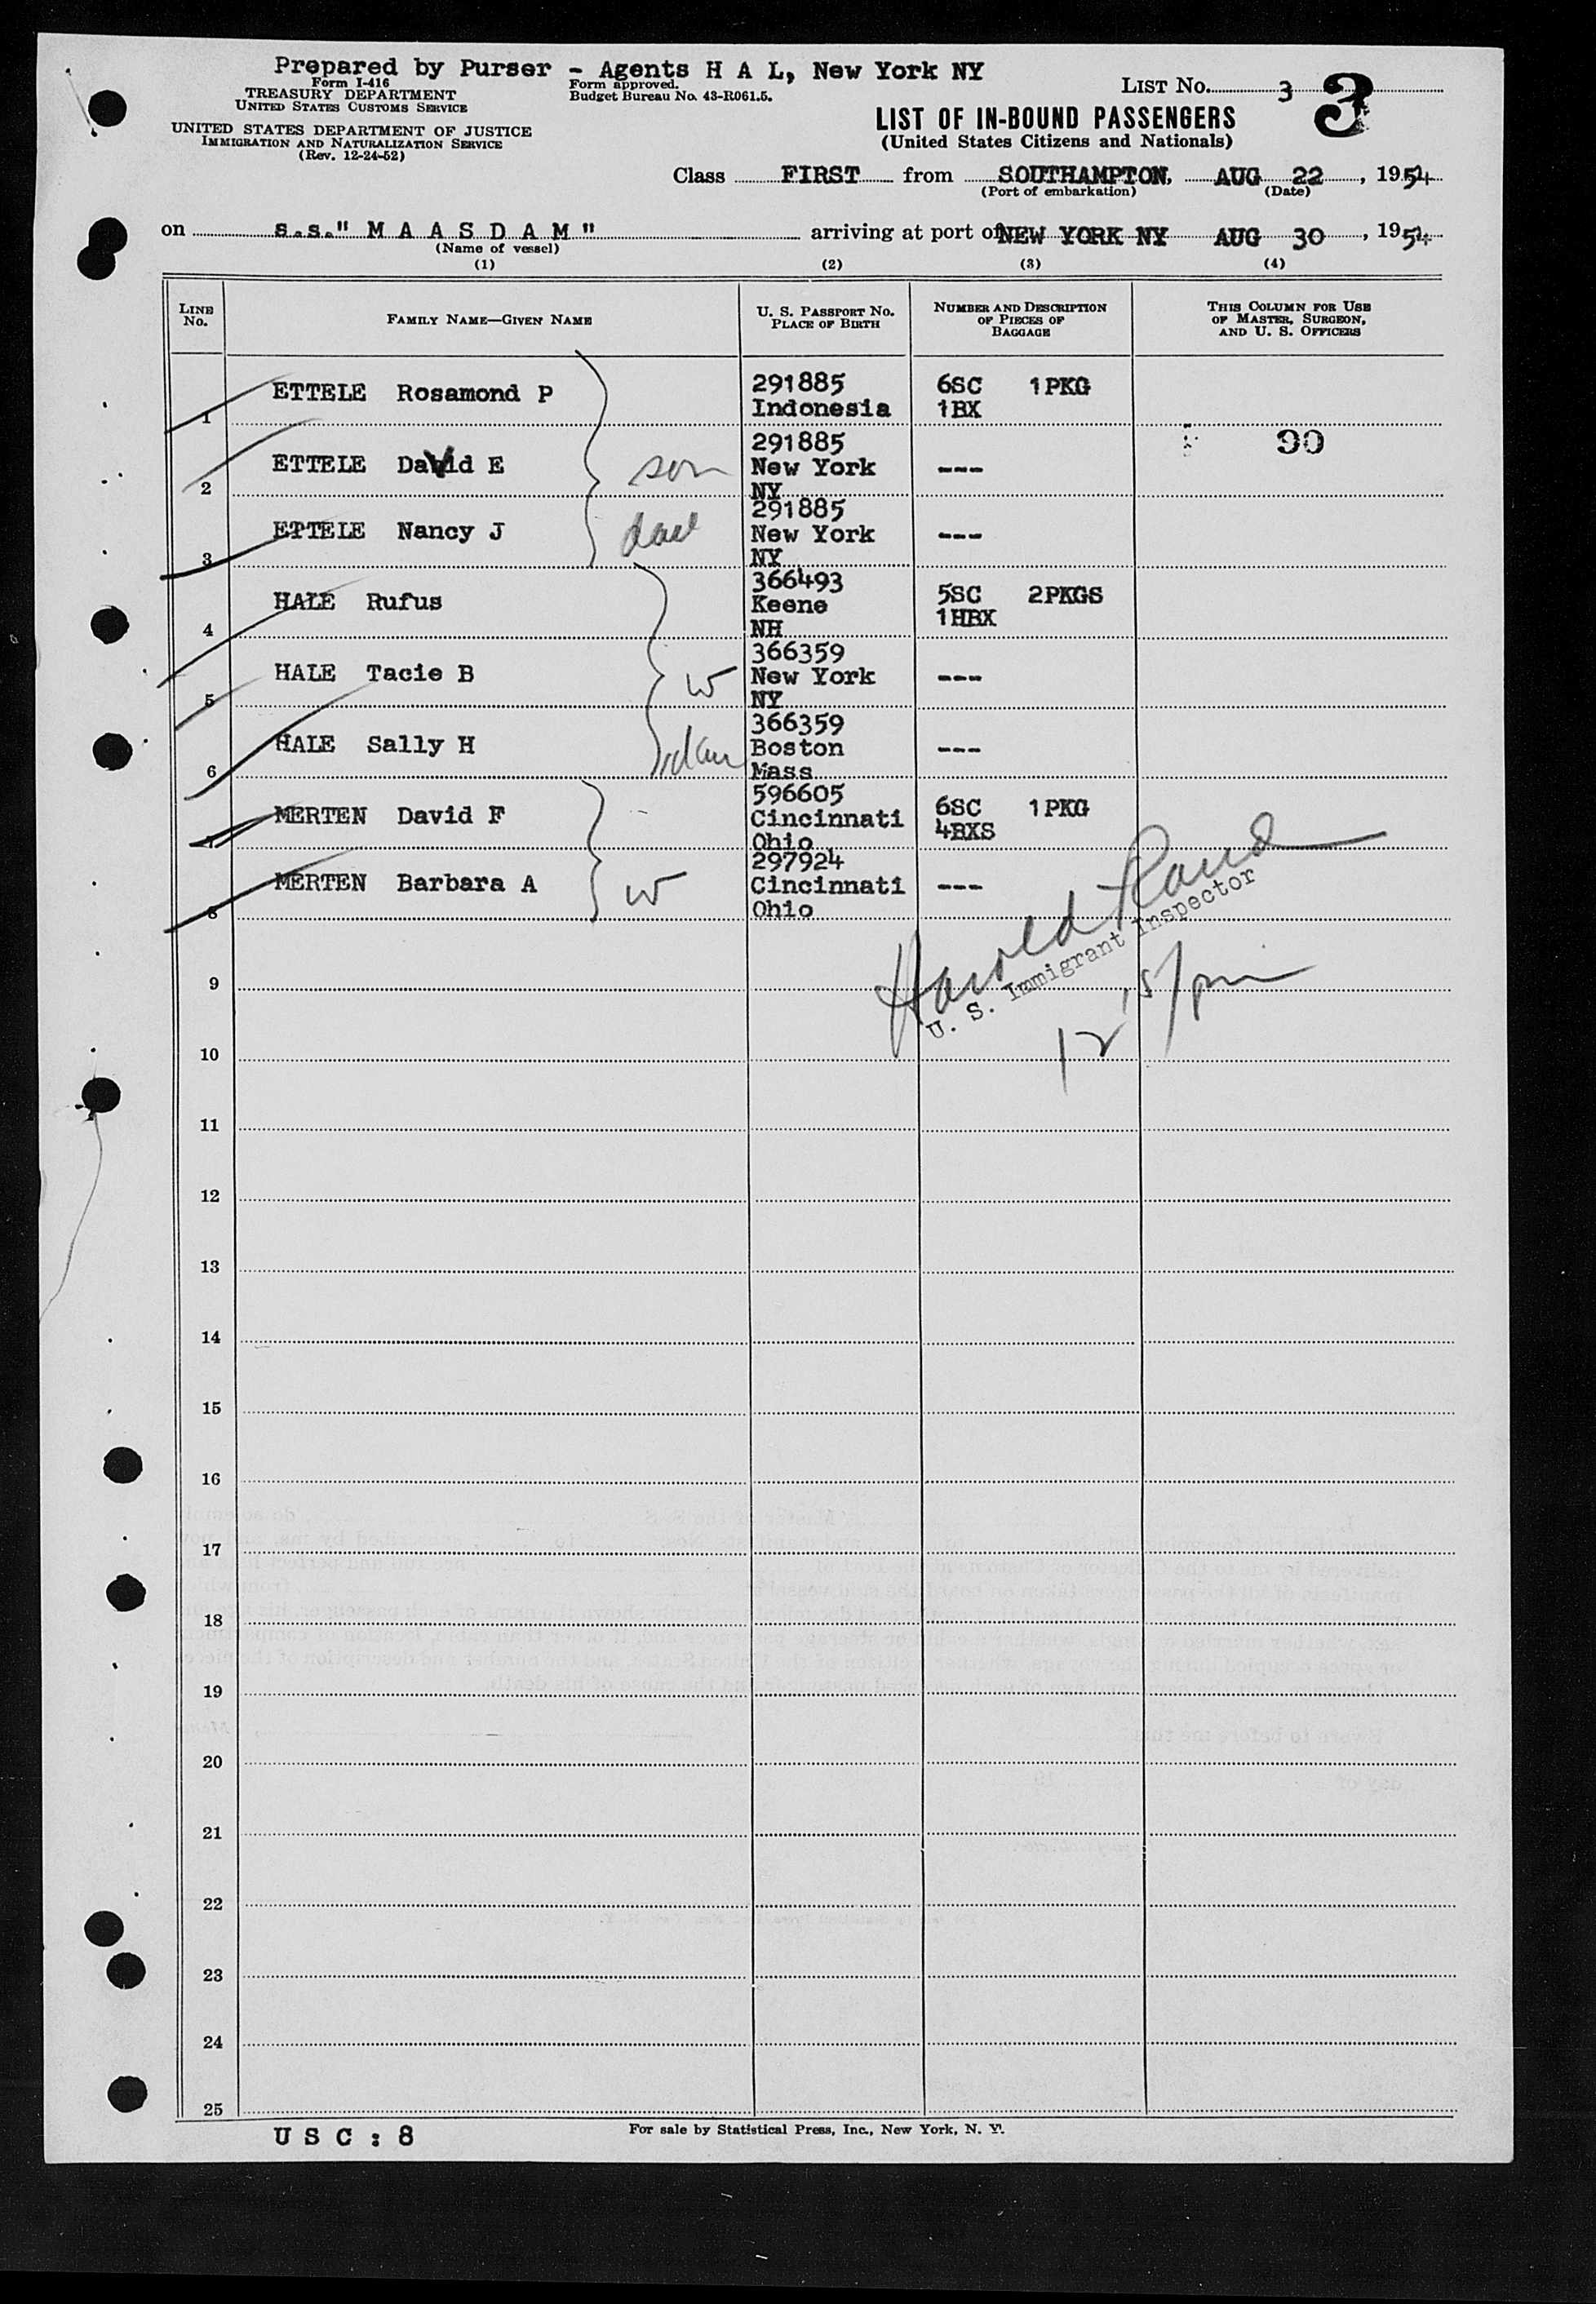 Prepared by Purser - Agents H A L, New York NY
Form I-416
TREASURY DEPARTMENT
UNITED STATES CUSTOMS SERVICE
Form approved.
Budget Bureau No. 43-R061.5.
LIST No. 3 3
UNITED STATES DEPARTMENT OF JUSTICE
IMMIGRATION AND NATURALIZATION SERVICE
(Rev. 12-24-52)
LIST OF IN-BOUND PASSENGERS
(United States Citizens and Nationals)
Class FIRST from SOUTHAMPTON, AUG 22, 1954
(Port of embarkation) (Date)
on s.s." M A A S D A M " arriving at port of NEW YORK NY AUG 30, 1954
(Name of vessel)
(1) (2) (3) (4)
LINE No. FAMILY NAME—GIVEN NAME U. S. PASSPORT NO. PLACE OF BIRTH NUMBER AND DESCRIPTION OF PIECES OF BAGGAGE THIS COLUMN FOR USE OF MASTER, SURGEON, AND U. S. OFFICERS
1 ETTELE Rosamond P 291885 Indonesia 6SC 1PKG 1BX
2 ETTELE David E son 291885 New York NY --- 90
3 ETTELE Nancy J dau 291885 New York NY ---
4 HALE Rufus 366493 Keene NH 5SC 2PKGS 1HBX
5 HALE Tacie B w 366359 New York NY ---
6 HALE Sally H dau 366359 Boston Mass ---
7 MERTEN David F 596605 Cincinnati Ohio 6SC 1PKG 4BXS
8 MERTEN Barbara A w 297924 Cincinnati Ohio ---
Harold
U. S. Immigrant Inspector
12 15/pm
9
10
11
12
13
14
15
16
17
18
19
20
21
22
23
24
25
U S C : 8
For sale by Statistical Press, Inc., New York, N. Y.